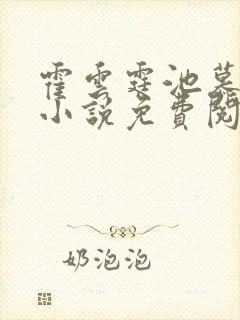 霍雲霆池慕
小說免費閱
奶泡泡